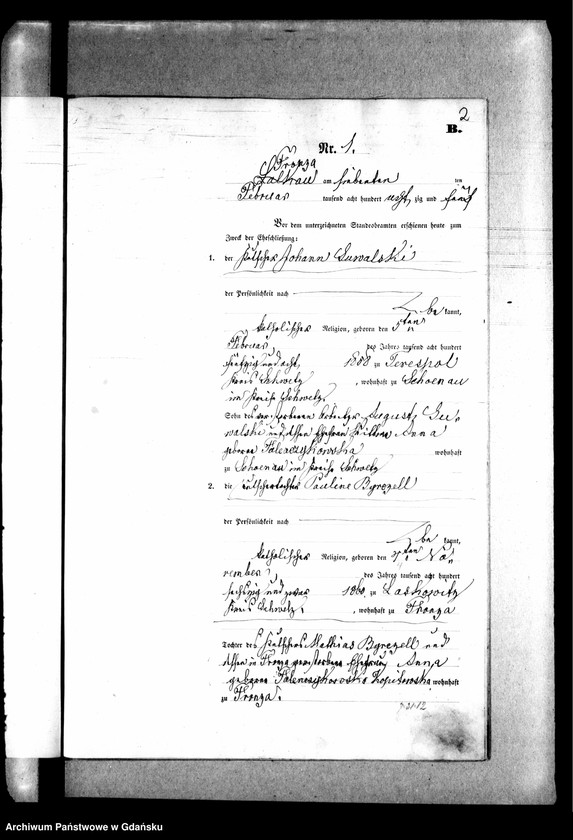 2
B.
Nr. 1.
Fronza
am siebenten ten
Februar tausend acht hundert acht zig und fünf
Vor dem unterzeichneten Standesbeamten erschienen heute zum
Zweck der Eheschließung:
1. der Kutscher Johann Suwalski
der Persönlichkeit nach
be kannt,
katholischer Religion, geboren den 5ten
Februar des Jahres tausend acht hundert
fünfzig und acht 1858 zu Terespol
Kreis Schwetz, wohnhaft zu Schoenau
im Kreise Schwetz.
Sohn des verstorbenen August Su-
walski und dessen Ehefrau Anna
geborene wohnhaft
zu Schoenau im Kreise Schwetz
2. die Pauline Byrezell
der Persönlichkeit nach
be kannt,
katholischer Religion, geboren den ten No-
vember des Jahres tausend acht hundert
sechszig und zwar 1860 zu Laskowitz
Kreis Schwetz, wohnhaft zu Fronza
Tochter des Kutschers Mathias Byrezell und
dessen in Fronza verstorbene Ehefrau Anna
geborene wohnhaft
zu Fronza.
Archiwum Państwowe w Gdańsku